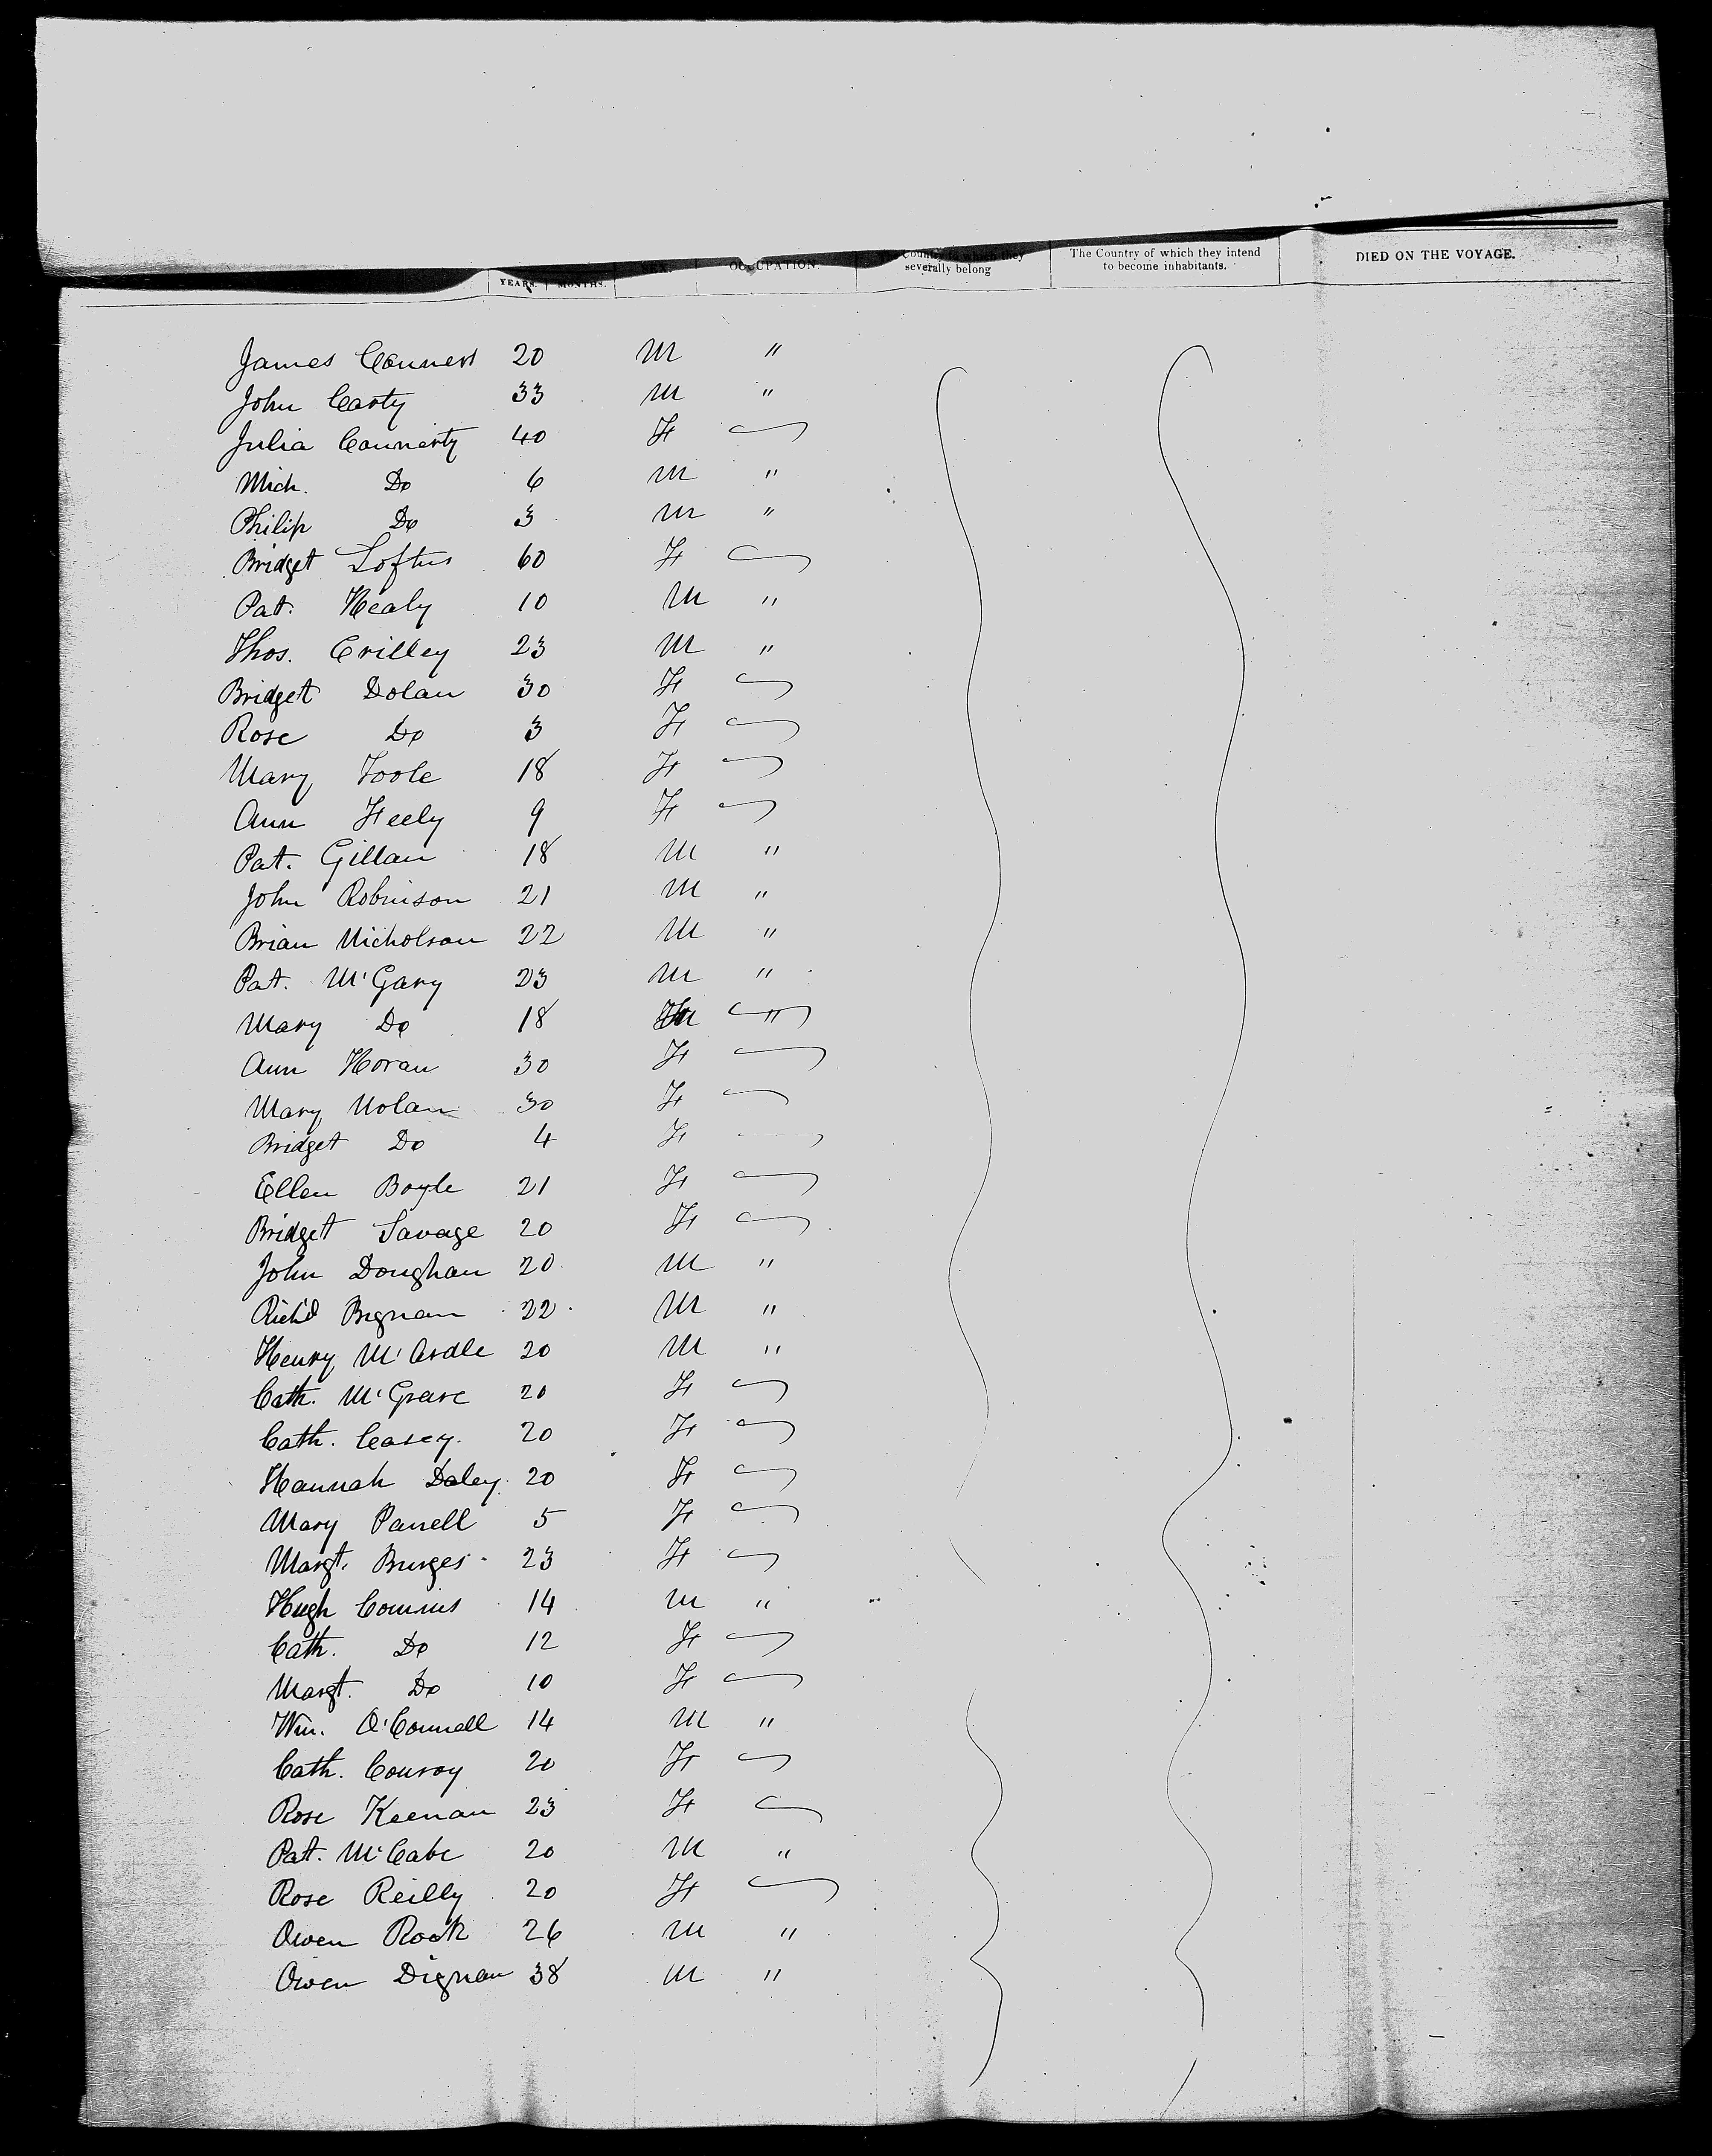 YEARS. MONTHS. SEX. OCCUPATION. The Country to which they severally belong The Country of which they intend to become inhabitants. DIED ON THE VOYAGE.
James Conners 20 M "
John Carty 33 M "
Julia Connerty 40 F
Mich. Do 6 M "
Philip Do 3 M "
Bridget Loftus 60 F
Pat. Healy 10 M "
Thos. Crilley 23 M "
Bridget Dolan 30 F
Rose Do 3 F
Mary Toole 18 F
Ann Feely 9 F
Pat. Gillan 18 M "
John Robinson 21 M "
Brian Nicholson 22 M "
Pat. McGary 23 M "
Mary Do 18 "
Ann Horan 30 F
Mary Nolan 30 F
Bridget Do 4 F
Ellen Boyle 21 F
Bridget Savage 20 F
John Doughan 20 M "
Rich'd Bignan 22 M "
Henry McArdle 20 M "
Cath. McGrave 20 F
Cath. Casey. 20 F
Hannah Daley. 20 F
Mary Parrell 5 F
Margt. Burges 23 F
Hugh Commins 14 M "
Cath. Do 12 F
Margt. Do 10 F
Wm. O'Connell 14 M "
Cath. Conroy 20 F
Rose Keenan 23 F
Pat. McCabe 20 M "
Rose Reilly 20 F
Owen Rock 26 M "
Owen Dignan 38 M "